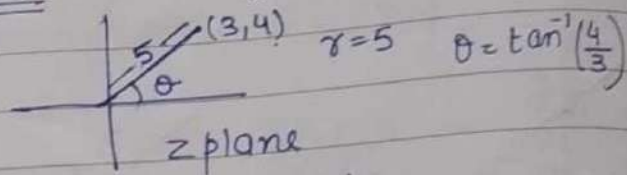 (3,4) r=5 θ= tan⁻¹(4/3)
5
θ
z plane